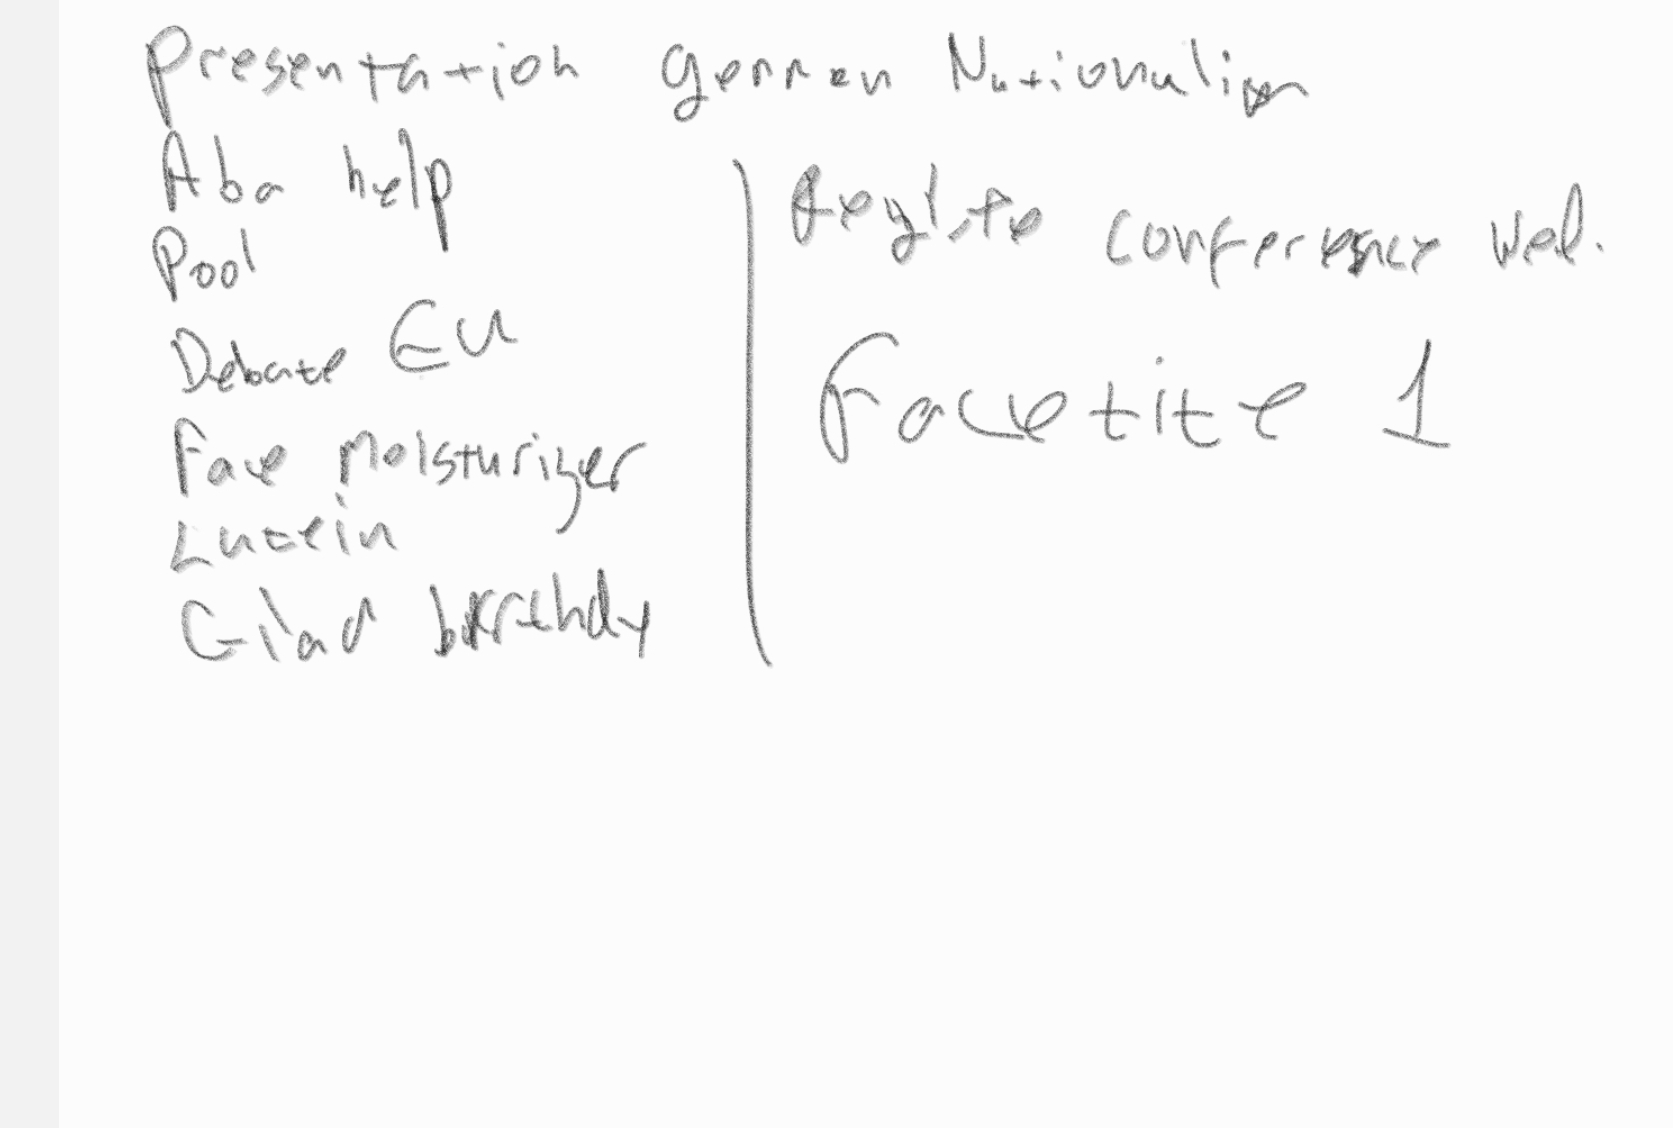 Presentation german Nationalism
Aba help
Pool
Debate EU
Face moisturizer
Lutein
Gilad birthdy
conference Wed.
Facetite 1